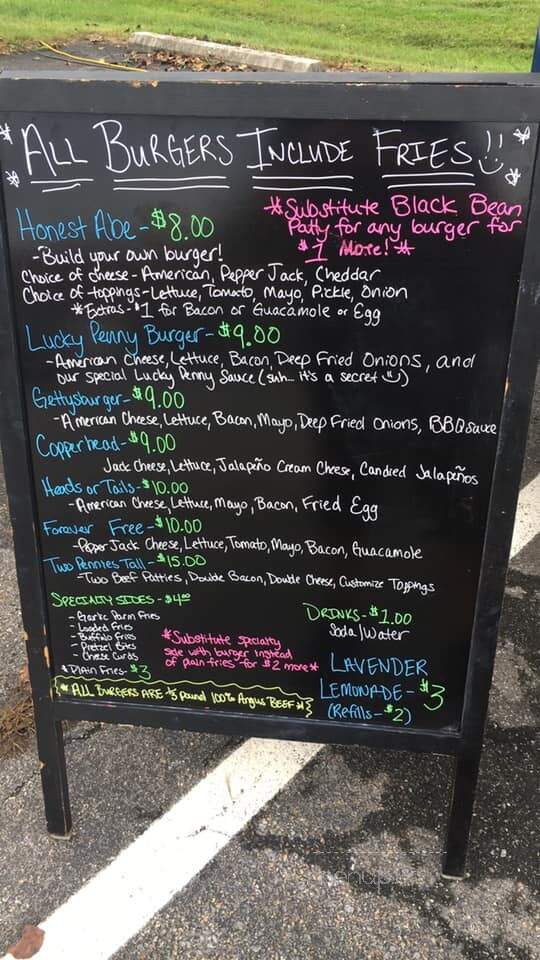 * ALL BURGERS INCLUDE FRIES *
Honest Abe - $8.00
* Substitute Black Bean
Patty for any burger for
$1 More! *
- Build your own burger!
Choice of cheese - American, Pepper Jack, Cheddar
Choice of toppings - Lettuce, Tomato, Mayo, Pickle, Onion
* Extras - $1 for Bacon or Guacamole or Egg
Lucky Penny Burger - $9.00
- American Cheese, Lettuce, Bacon, Deep Fried Onions, and
our special Lucky Penny Sauce (shh.. it's a secret)
Gettysburger - $9.00
- American Cheese, Lettuce, Bacon, Mayo, Deep Fried Onions, BBQ Sauce
Copperhead - $9.00
Jack Cheese, Lettuce, Jalapeño Cream Cheese, Candied Jalapeños
Heads or Tails - $10.00
- American Cheese, Lettuce, Mayo, Bacon, Fried Egg
Forever Free - $10.00
- Pepper Jack Cheese, Lettuce, Tomato, Mayo, Bacon, Guacamole
Two Pennies Tall - $15.00
- Two Beef Patties, Double Bacon, Double Cheese, Customize Toppings
SPECIALTY SIDES - $4.00
- Garlic Parm Fries
- Loaded Fries
- Buffalo Fries
- Pretzel Bites
- Cheese Curds
* Plain Fries - $3
* Substitute specialty
side with burger instead
of plain fries for $2 more *
DRINKS - $1.00
Soda/Water
LAVENDER
LEMONADE - $3
(Refills - $2)
* ALL BURGERS ARE 1/3 pound 100% Angus BEEF *